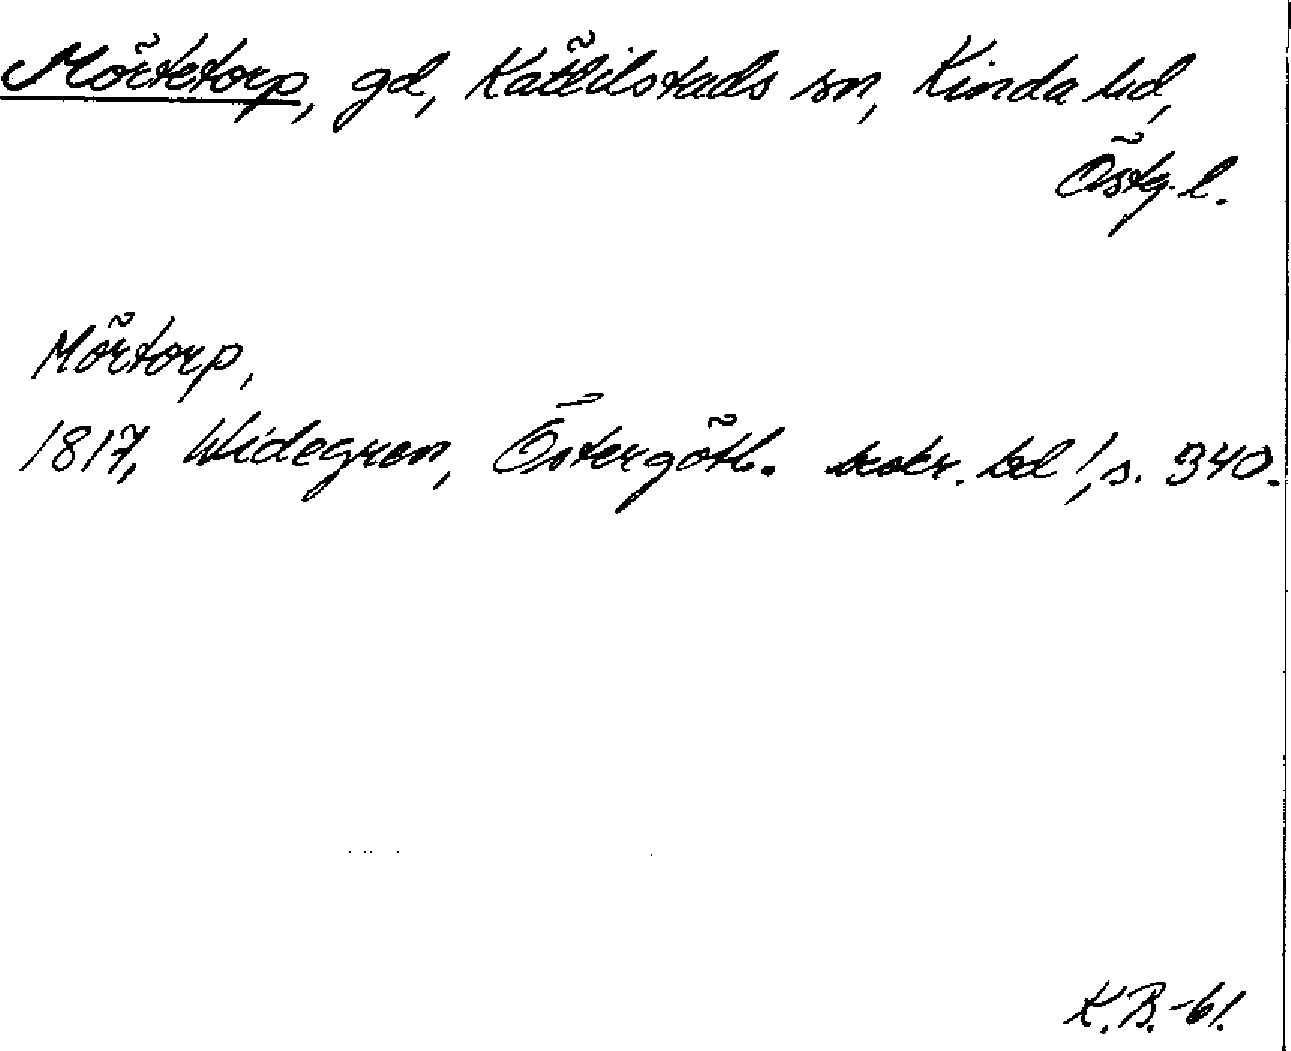 Mörtetorp, gd, Kättilstads sn, Kinda hd,
Östg. l.
Mörtorp,
1817, Widegren, Östergötl. beskr. bd 1, s. 340.
K.B.-61.